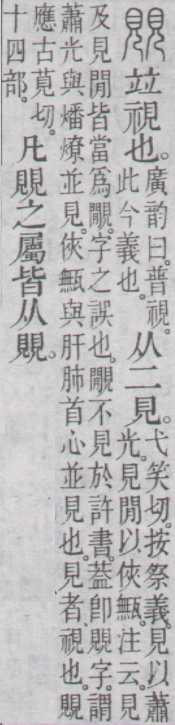 覞竝視也。廣韵曰。普視。
此今義也。
从二見。弋笑切。按祭義。見以蕭
光。見閒以俠甒。注云。見
及見閒皆當爲覵。字之誤也。覵不見於許書。葢卽覞字。謂
蕭光與燔燎並見。俠甒與肝肺首心並見也。見者、視也。覞
應古莧切。
十四部。
凡覞之屬皆从覞。